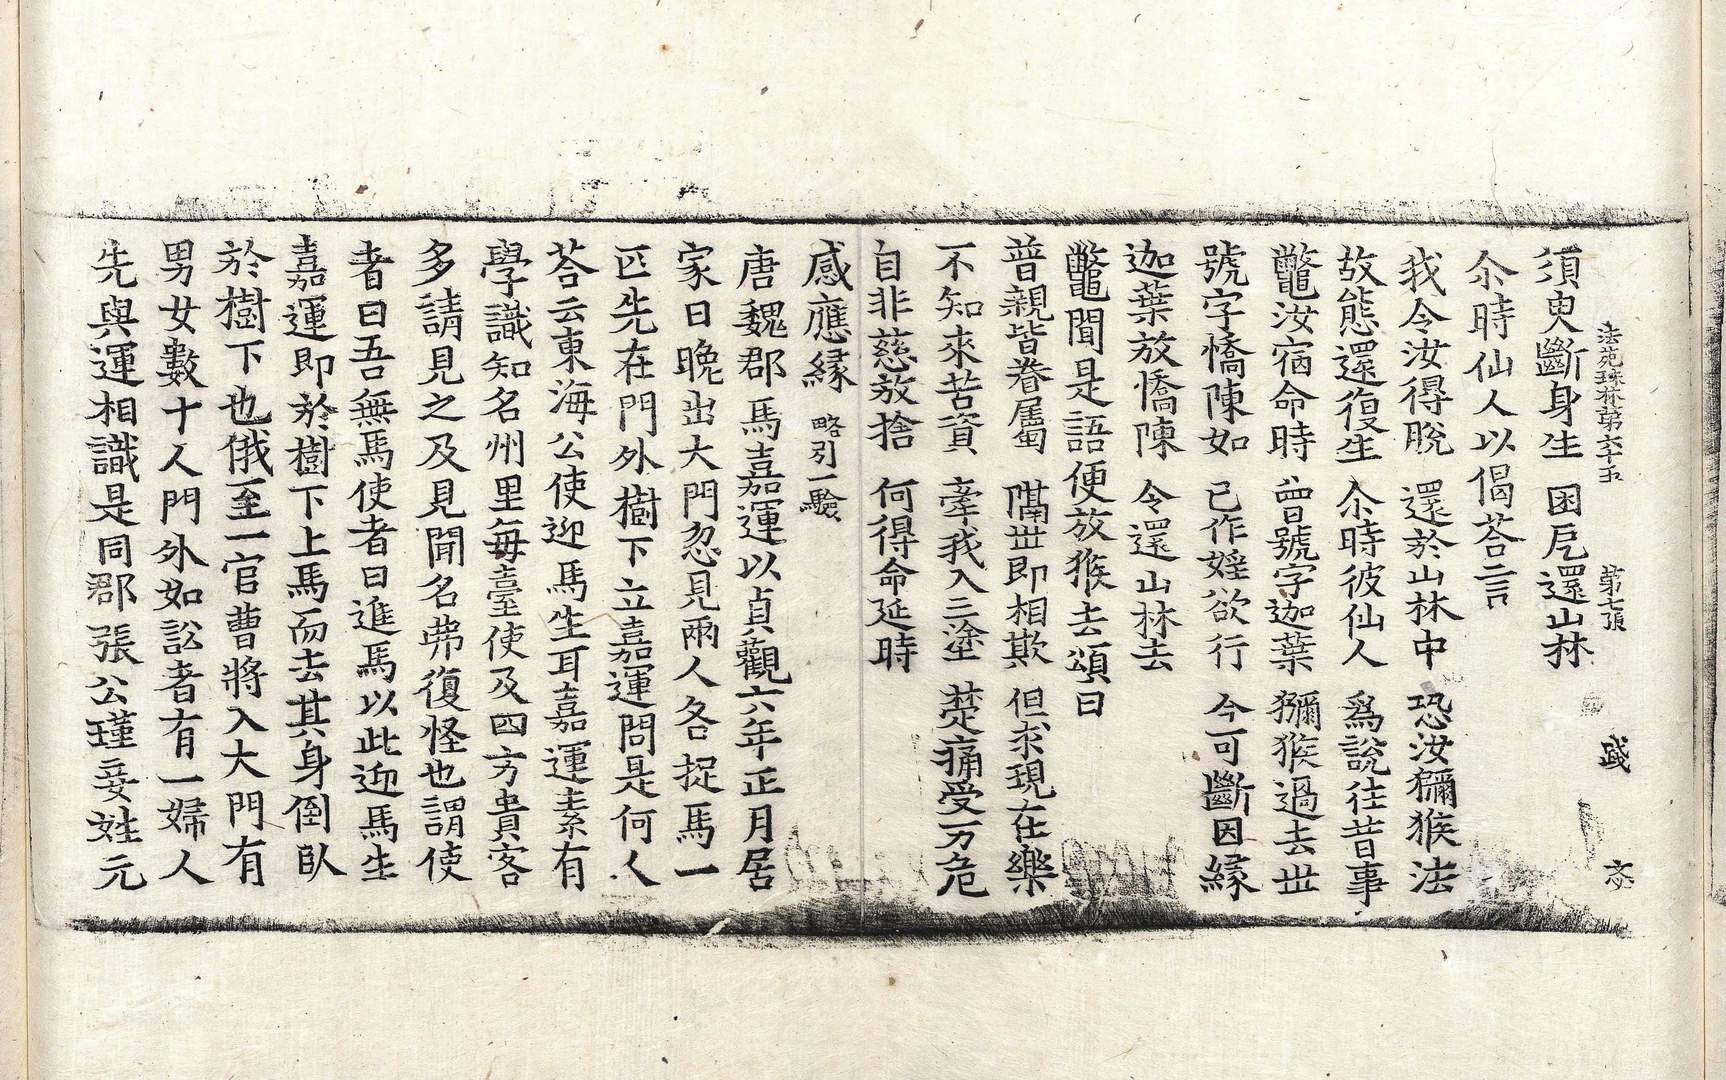 法苑珠林第六十五 第七張 㦯 文
須臾斷身生 困㞐還山林
尒時仙人以偈荅言
我令汝得脫 還於山林中 恐汝獼猴法
故態還復生 尒時彼仙人 爲說往昔事
鼈汝宿命時 曾號字迦葉 獼猴過去世
號字憍陳如 已作婬欲行 今可斷因緣
迦葉放憍陳 令還山林去
鼈聞是語便放猴去頌曰
普親皆眷屬 隔世即相欺 但求現在樂
不知來苦資 牽我入三塗 楚痛受万危
自非慈放捨 何得命延時
感應緣 略引一驗
唐魏郡馬嘉運以貞觀六年正月居
家日晚出大門忽見兩人各捉馬一
匹先在門外樹下立嘉運問是何人
荅云東海公使迎馬生耳嘉運素有
學識知名州里每臺使及四方貴客
多請見之及見聞名弗復怪也謂使
者曰吾無馬使者曰進馬以此迎馬生
嘉運即於樹下上馬而去其身倒臥
於樹下也俄至一官曹將入大門有
男女數十人門外如訟者有一婦人
先與運相識是同郡張公瑾妾姓元